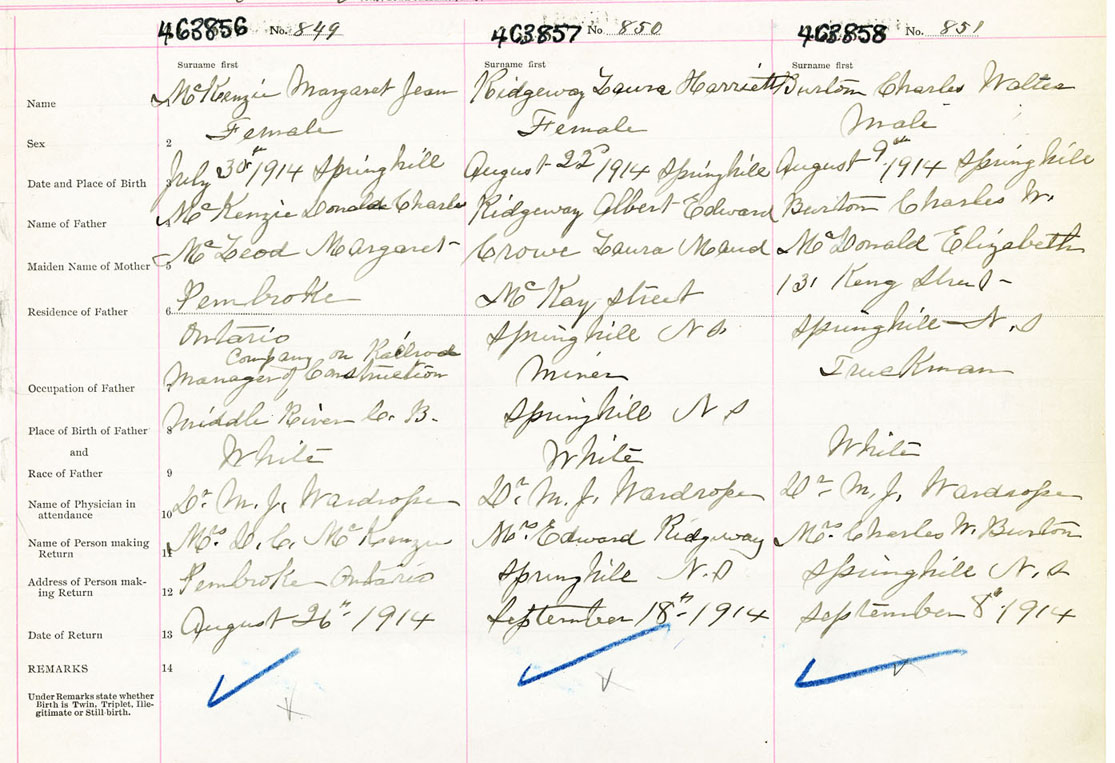 463856 No. 849
Surname first
463857 No 850
Surname first
463858 No. 851
Surname first
Name
McKenzie Margaret Jean
Ridgeway Laura Harriett
Burton Charles Walter
Sex 2
Female
Female
Male
Date and Place of Birth
July 30th 1914 Springhill
August 22d 1914 Springhill
August 9th 1914 Springhill
Name of Father 4
McKenzie Donald Charles
Ridgeway Albert Edward
Burton Charles W.
Maiden Name of Mother 5
McLeod Margaret
Crowe Laura Maud
McDonald Elizabeth
Residence of Father 6
Pembroke
Ontario
McKay Street
Springhill N S
131 King Street
Springhill N.S
Occupation of Father 7
Company on Railroad
Manager of Construction
Miner
Truckman
Place of Birth of Father 8
Middle River C. B.
Springhill N S
and
Race of Father 9
White
White
White
Name of Physician in
attendance 10
Dr. M. J. Wardrope
Dr. M. J. Wardrope
Dr. M. J. Wardrope
Name of Person making
Return 11
Mrs. D. C. McKenzie
Mrs Edward Ridgeway
Mrs. Charles W. Burton
Address of Person mak-
ing Return 12
Pembroke Ontario
Springhill N.S
Springhill N.S
Date of Return 13
August 26th 1914
September 18th 1914
September 8th 1914
REMARKS 14
Under Remarks state whether
Birth is Twin, Triplet, Ille-
gitimate or Still-birth.